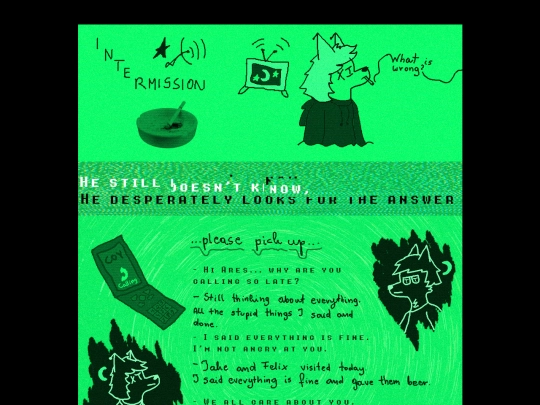 INTERMISSION
What is
wrong?
HE STILL DOESN'T KNOW,
HE DESPERATELY LOOKS FOR THE ANSWER
...please pick up...
COY
Calling
- HI ARES... WHY ARE YOU
CALLING SO LATE?
- Still thinking about everything.
All the stupid things I said and
done.
- I SAID EVERYTHING IS FINE.
I'M NOT ANGRY AT YOU.
- Jake and Felix visited today.
I said everything is fine and gave them beer.
- WE ALL CARE ABOUT YOU.